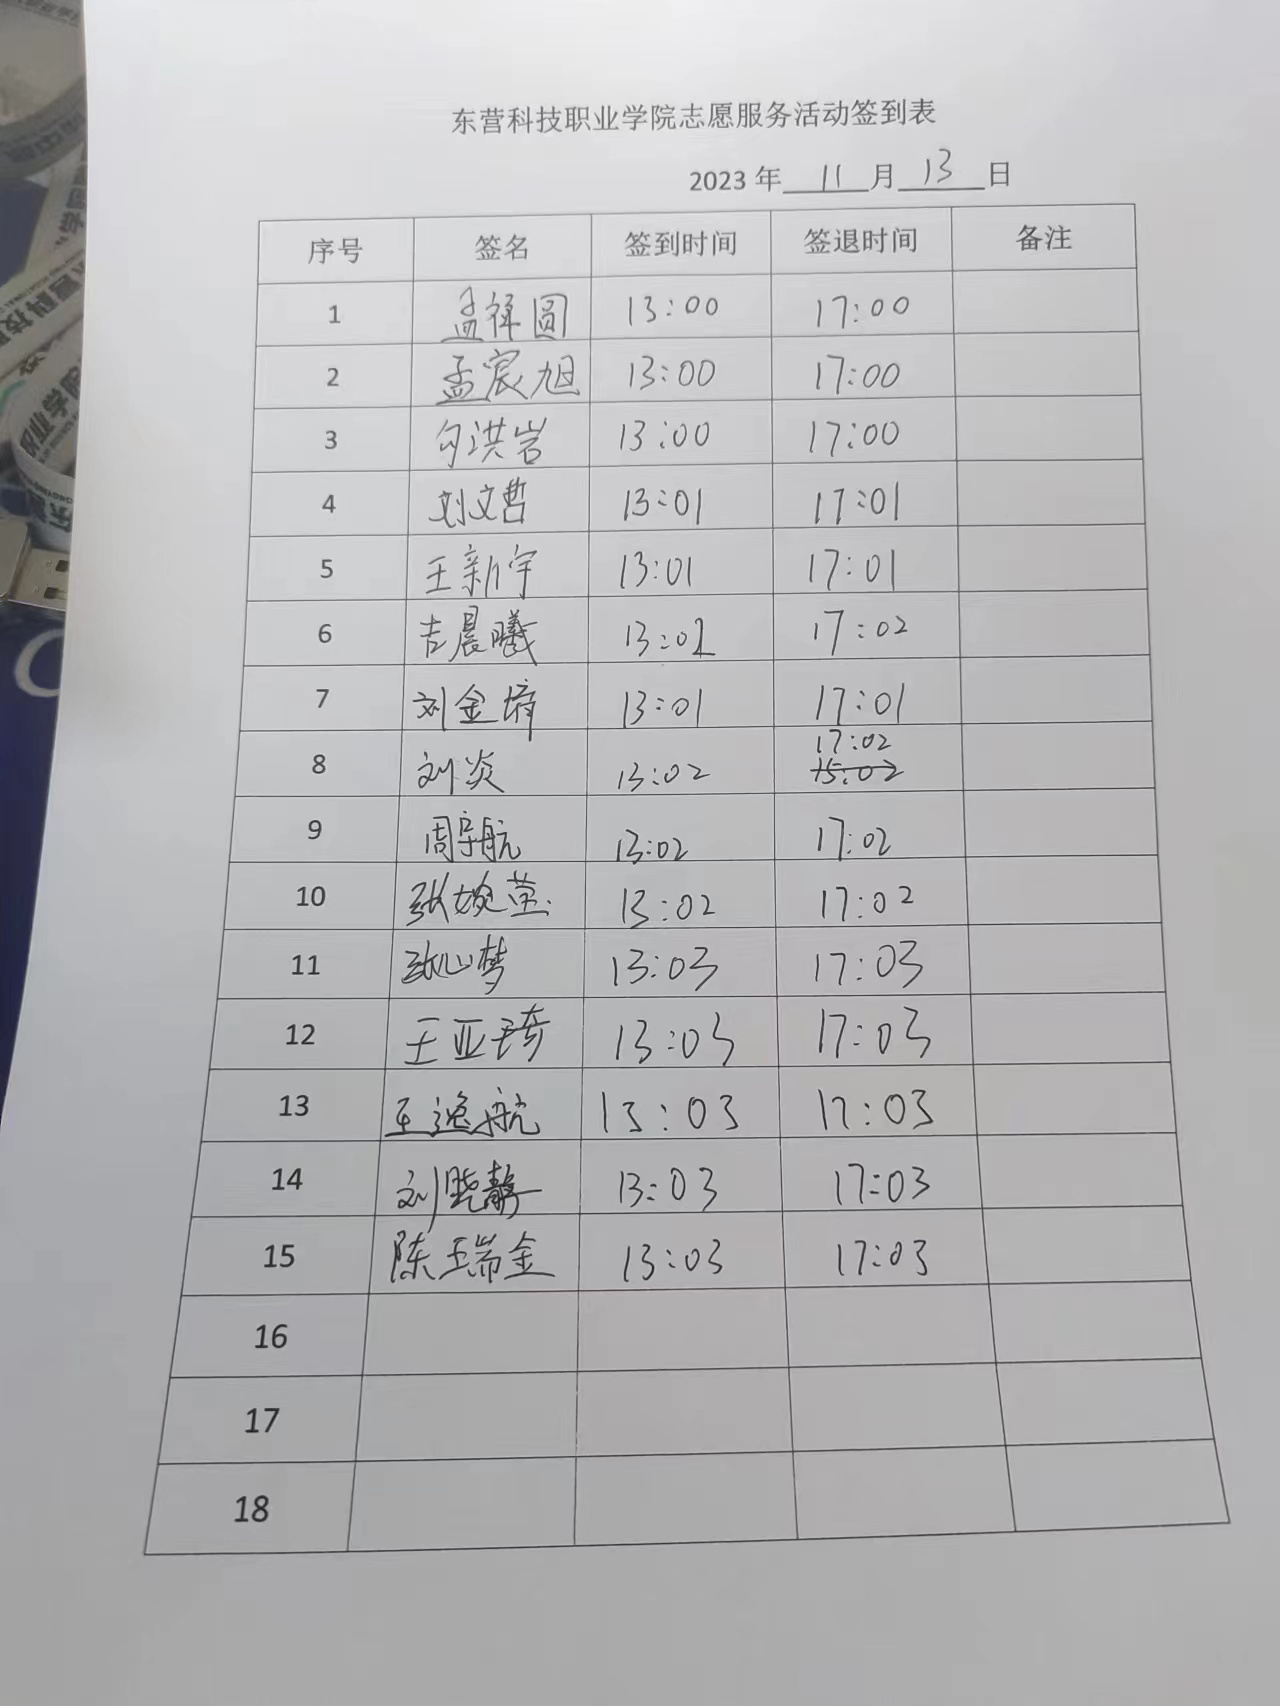 东营科技职业学院志愿服务活动签到表
2023 年 11 月 13 日
序号 签名 签到时间 签退时间 备注
1 孟祥圆 13:00 17:00
2 孟宸旭 13:00 17:00
3 勾洪岩 13:00 17:00
4 刘文哲 13:01 17:01
5 王新宇 13:01 17:01
6 吉晨曦 13:02 17:02
7 刘金 13:01 17:01
8 刘炎 13:02 17:02 15:02
9 周宇航 13:02 17:02
10 张婉莹 13:02 17:02
11 张心梦 13:03 17:03
12 王亚琦 13:03 17:03
13 王逸航 13:03 17:03
14 刘晓静 13:03 17:03
15 陈瑞金 13:03 17:03
16
17
18